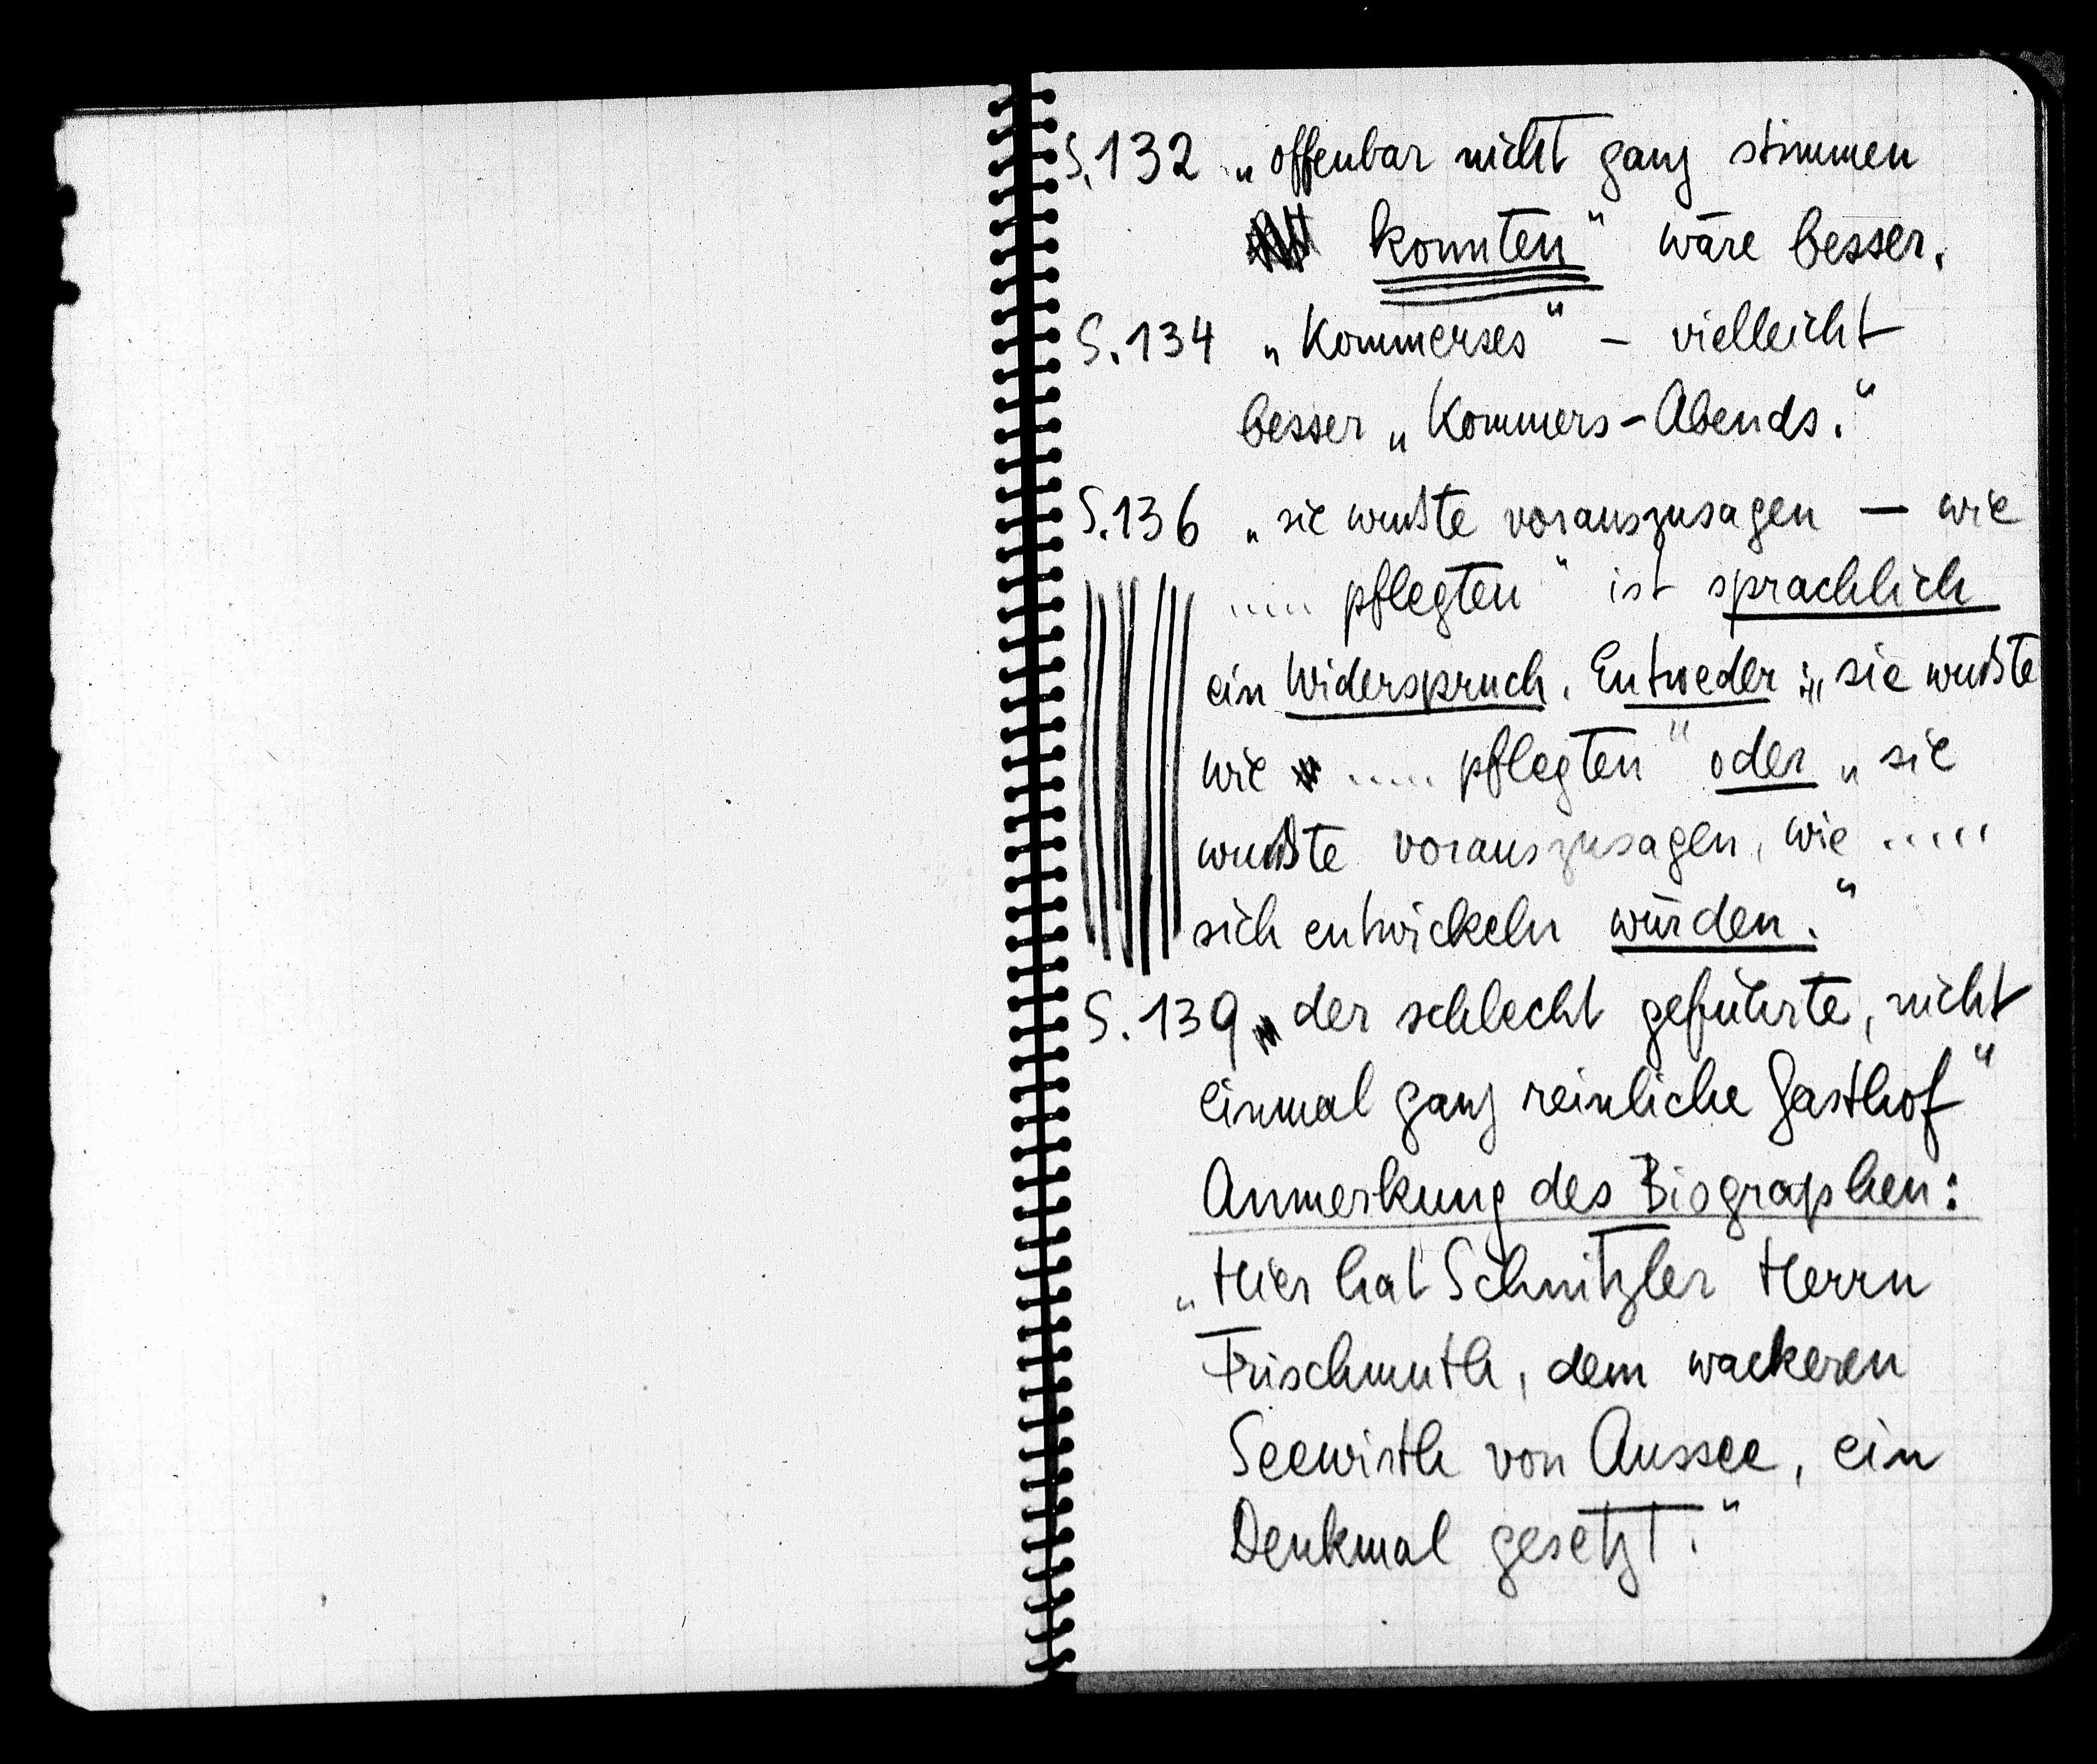 S. 132 „offenbar nicht ganz stimmen
konnten“ wäre besser.
S. 134 „Kommerses“ – vielleicht
besser „Kommers-Abends.“
S. 136 „sie wußte vorauszusagen — wie
..... pflegten“ ist sprachlich
ein Widerspruch. Entweder: „sie wußte
wie ..... pflegten“ oder „sie
wußte vorauszusagen, wie .....
sich entwickeln würden.“
S. 139 „der schlecht geführte, nicht
einmal ganz reinliche Gasthof“
Anmerkung des Biographen:
„Hier hat Schnitzler Herrn
Frischmuth, dem wackeren
Seewirth von Aussee, ein
Denkmal gesetzt.“